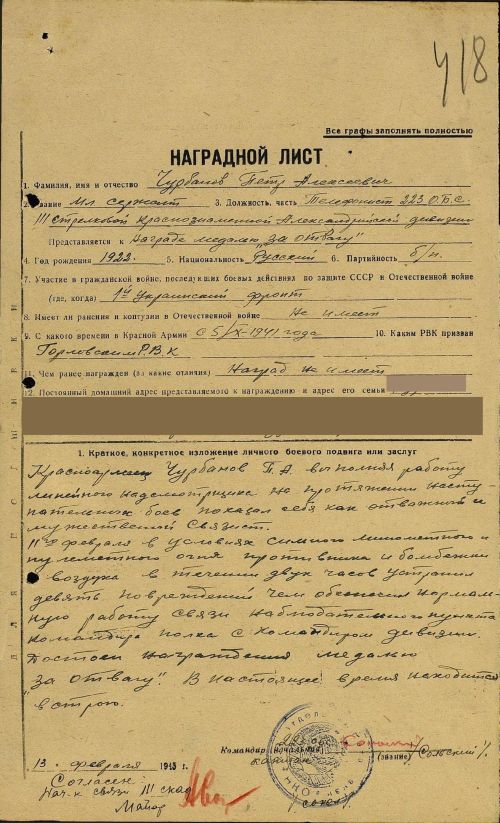 418
Все графы заполнять полностью
НАГРАДНОЙ ЛИСТ
1. Фамилия, имя и отчество Чурбанов Петр Алексеевич
2. Звание Мл сержант 3. Должность, часть Телефонист 223 О.Б.С.
111 Стрелковой Краснознаменной Александрийской дивизии
Представляется к Награде медалью "За отвагу"
4. Год рождения 1922. 5. Национальность Русский 6. Партийность б/п.
7. Участие в гражданской войне, последующих боевых действиях по защите СССР в Отечественной войне
(где, когда) 1й Украинский фронт
8. Имеет ли ранения и контузии в Отечественной войне Не имеет
9. С какого времени в Красной Армии С 5/X-1941 года 10. Каким РВК призван
Горловским Р.В.К
11. Чем ранее награжден (за какие отличия) Наград не имеет
12. Постоянный домашний адрес представляемого к награждению и адрес его семьи
1. Краткое, конкретное изложение личного боевого подвига или заслуг
Красноармеец Чурбанов П.А. выполняя работу
линейного надсмотрщика на протяжении насту-
пательных боев показал себя как отважный и
мужественный связист.
11го февраля в условиях сильного минометного и
пулеметного огня противника и бомбежки
с воздуха в течении двух часов устранил
девять повреждений чем обеспечил нормаль-
ную работу связи наблюдательного пункта
командира полка с командиром дивизии.
Достоин награждения медалью
"За отвагу". В настоящее время находится
в строю.
Командир (начальник)
капитан (звание) /Сольский/
13 февраля 1945 г.
Согласен:
Нач-к связи 111 скад
Майор